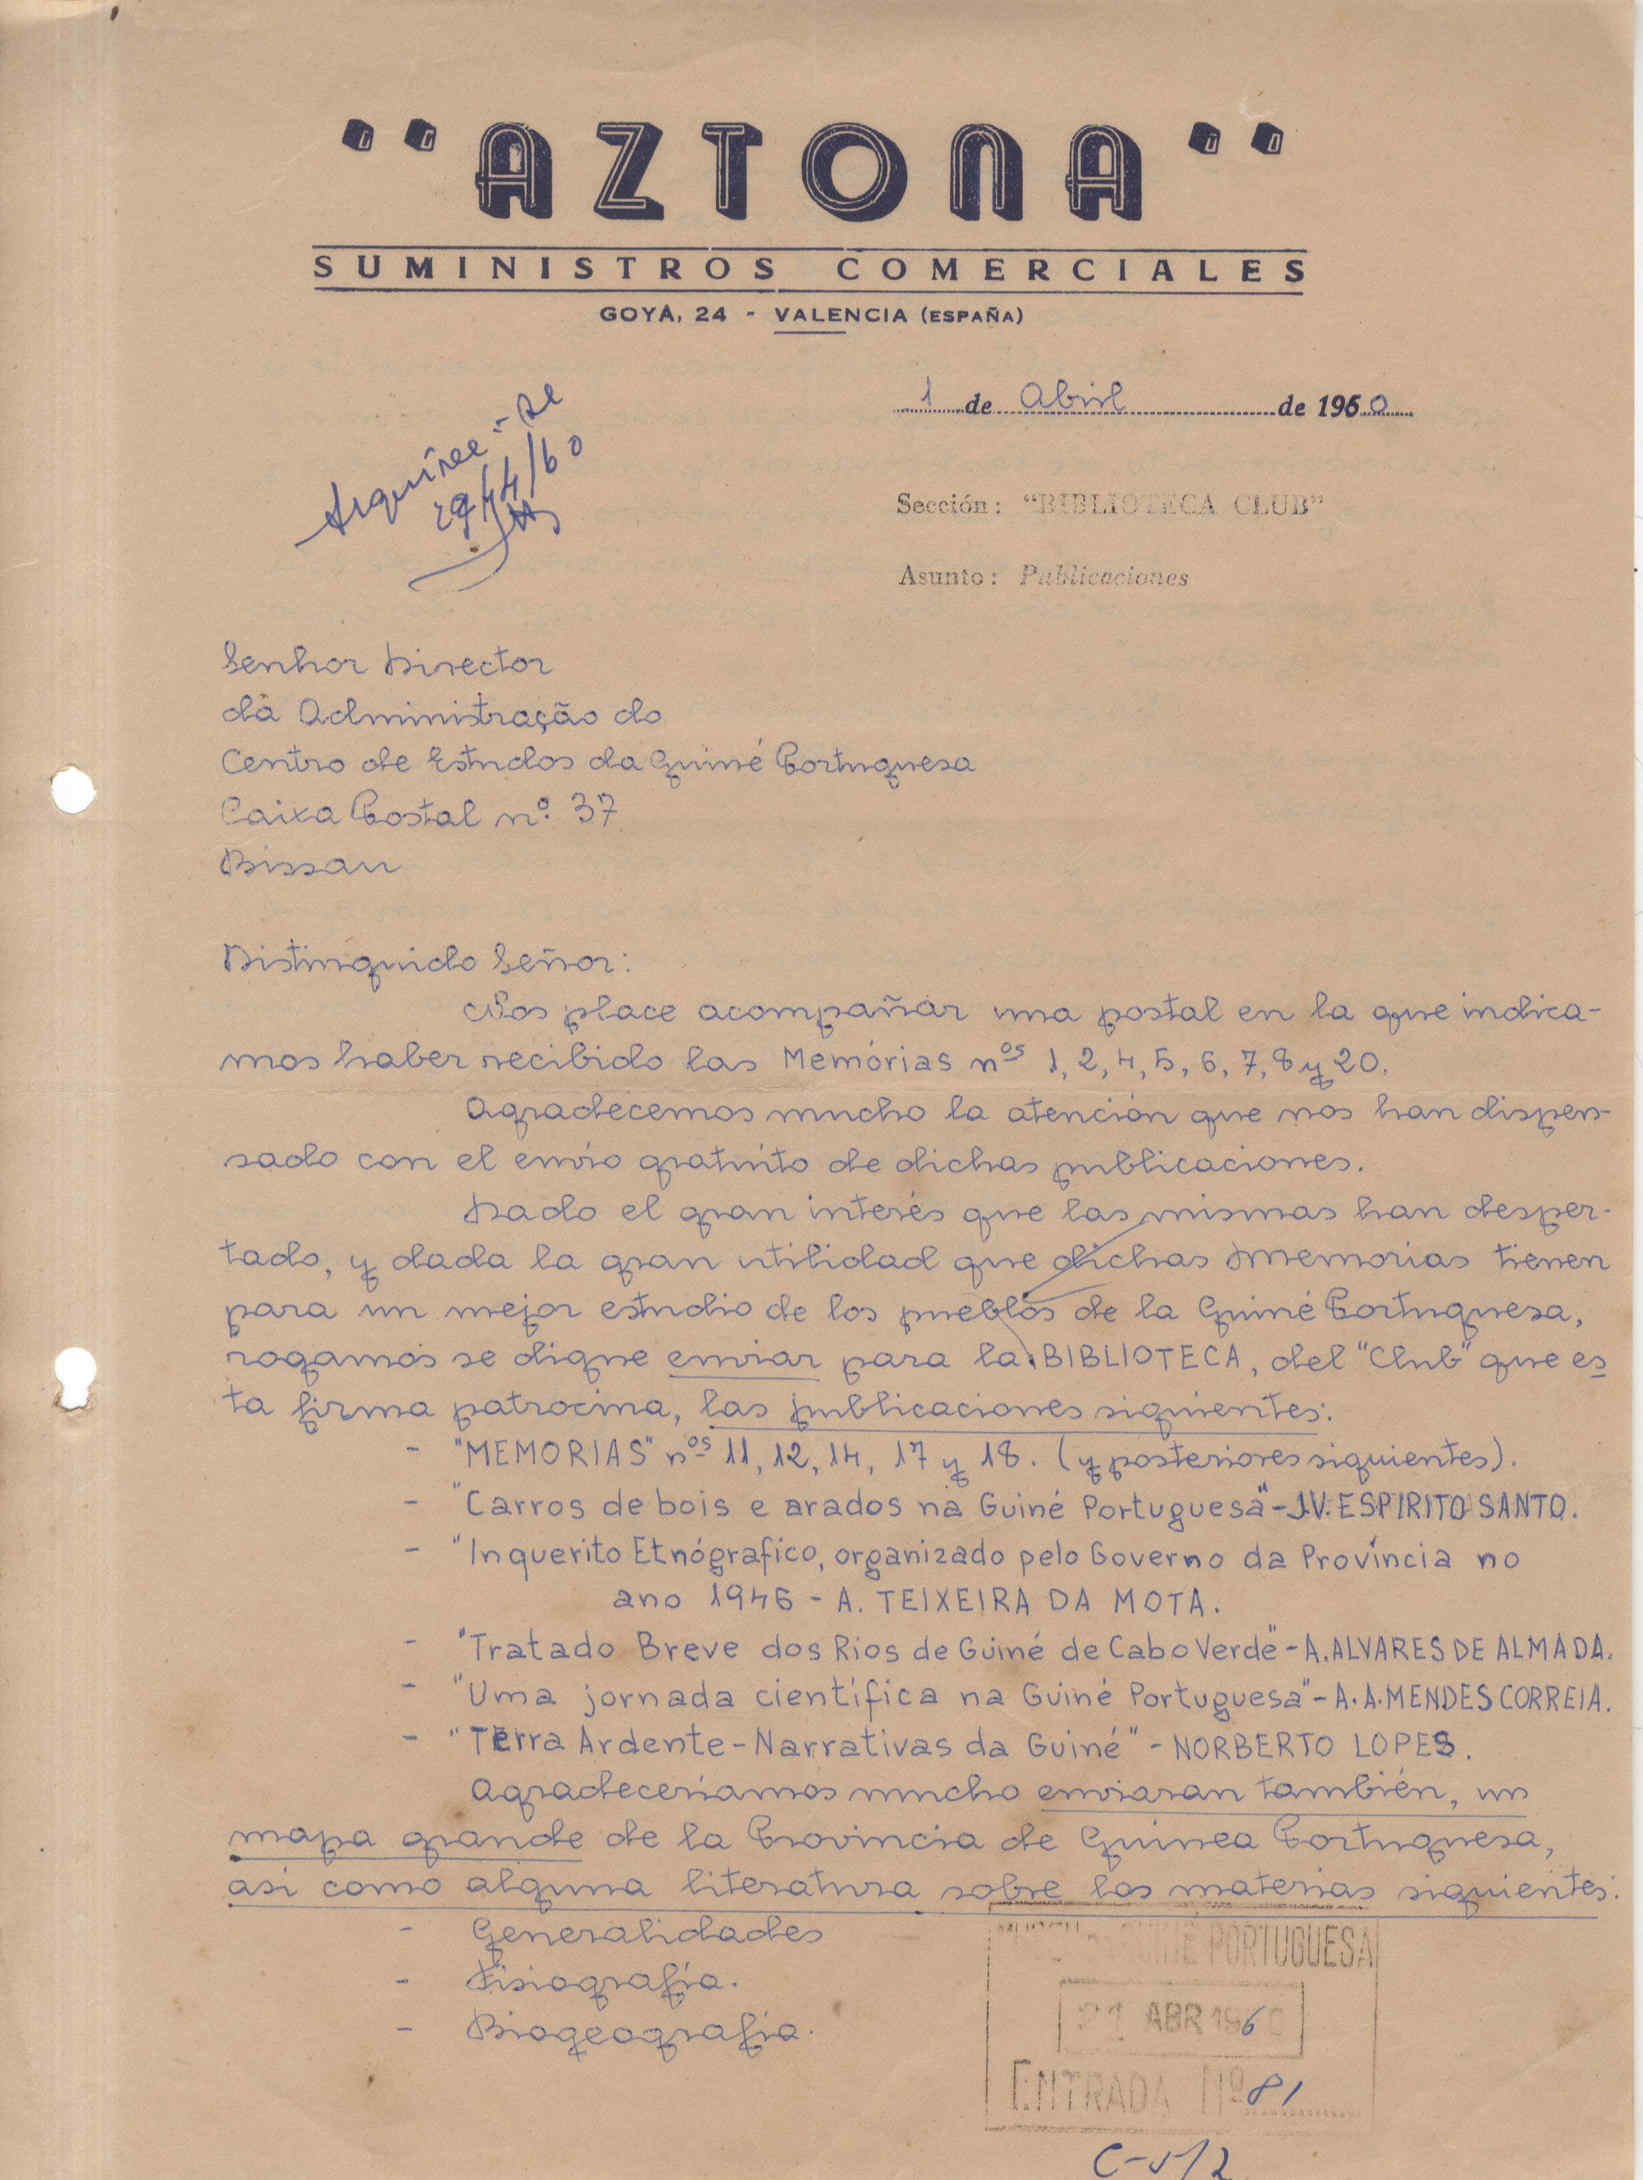 "AZTONA"
SUMINISTROS COMERCIALES
GOYA, 24 - VALENCIA (ESPAÑA)
1 de Abril de 1960
Arquive-se
29/4/60
Sección: "BIBLIOTECA CLUB"
Asunto: Publicaciones
Senhor Director
da Administração do
Centro de Estudos da Guiné Portuguesa
Caixa Postal nº. 37
Bissau
Distinguido Señor:
Nos place acompañar una postal en la que indica-
mos haber recibido las Memórias nos 1, 2, 4, 5, 6, 7, 8 y 20.
Agradecemos mucho la atención que nos han dispen-
sado con el envío gratuito de dichas publicaciones.
Dado el gran interés que las mismas han desper-
tado, y dada la gran utilidad que dichas Memorias tienen
para un mejor estudio de los pueblos de la Guiné Portuguesa,
rogamos se digne enviar para la BIBLIOTECA, del "Club" que es
ta firma patrocina, las publicaciones siguientes:
- "MEMORIAS" nos 11, 12, 14, 17 y 18. (y posteriores siguientes).
- "Carros de bois e arados na Guiné Portuguesa" - J.V. ESPIRITO SANTO.
- "Inquerito Etnógrafico, organizado pelo Governo da Província no
ano 1946 - A. TEIXEIRA DA MOTA.
- "Tratado Breve dos Rios de Guiné de Cabo Verde" - A. ALVARES DE ALMADA.
- "Uma jornada científica na Guiné Portuguesa" - A.A. MENDES CORREIA.
- "Terra Ardente - Narrativas da Guiné" - NORBERTO LOPES.
Agradeceríamos mucho enviaran también, un
mapa grande de la Provincia de Guinea Portuguesa,
asi como alguna literatura sobre las materias siguientes:
- Generalidades
- Fisiografía.
- Biogeografía.
GUINÉ PORTUGUESA
21 ABR 1960
ENTRADA Nº 81
C-5/2